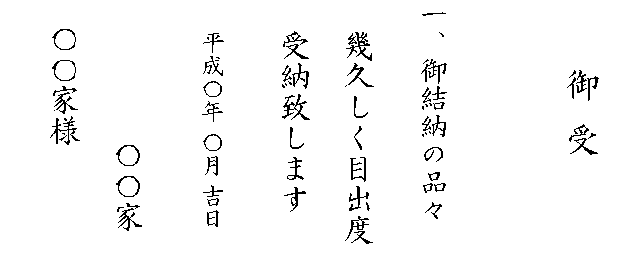 御受
一、御結納の品々
幾久しく目出度
受納致します
平成〇年〇月吉日
〇〇家
〇〇家様